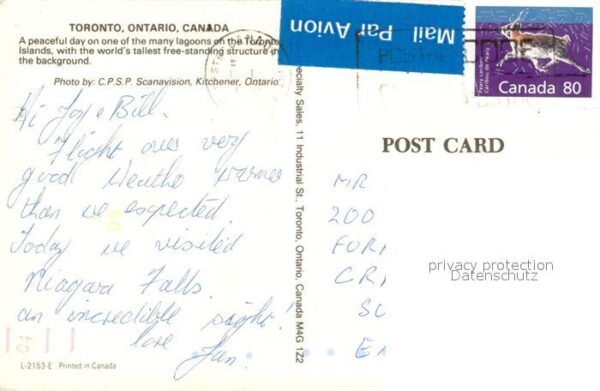 TORONTO, ONTARIO, CANADA
A peaceful day on one of the many lagoons on the Toronto
Islands, with the world's tallest free-standing structure in
the background.
Photo by: C.P.S.P. Scanavision, Kitchener, Ontario
Hi Joy & Bill.
Flight over very
good Weather warmer
than we expected.
Today we visited
Niagara Falls.
an incredible sight!
love
Jan.
L-2153-E Printed in Canada
ecialty Sales, 11 Industrial St., Toronto, Ontario, Canada M4G 1Z2
Mail Par Avion
Peary caribou
Caribou de Peary
Canada 80
POST CARD
MR
200
FOR
CR
SU
EN
privacy protection
Datenschutz